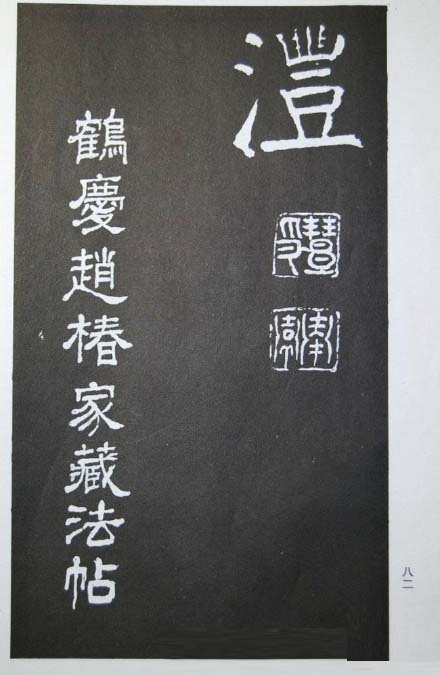 灃
鶴慶趙椿家藏法帖
八二